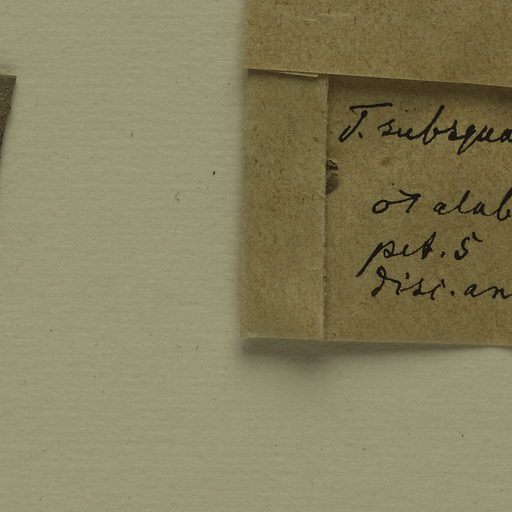 T. subsqua
♂ alab
pet. 5
disc. an